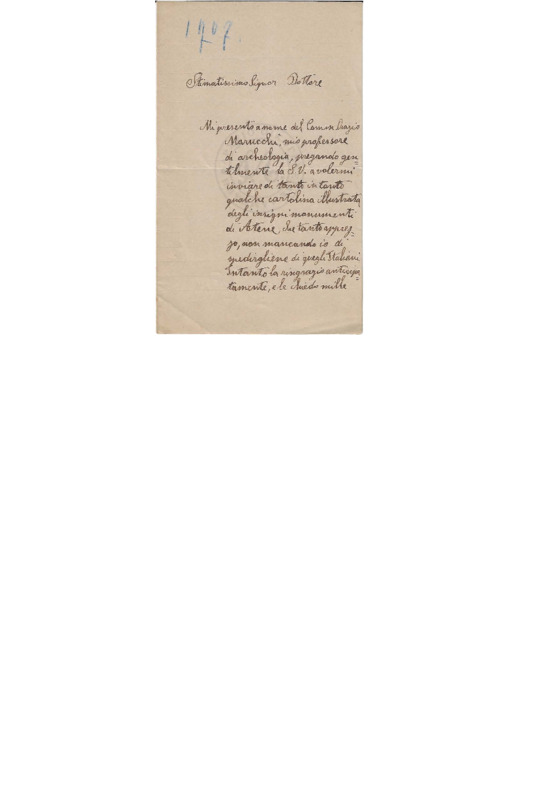 1907.
Stimatissimo Signor Dottore
Mi presento a nome del Comm. Orazio
Marucchi, mio professore
di archeologia, pregando gen=
tilmente la S. V. a volermi
inviare di tanto in tanto
qualche cartolina illustrata
degli insigni monumenti
di Atene, che tanto apprez=
zo, non mancando io di
spedirgliene di quegli Italiani.
Intanto la ringrazio anticipa=
tamente, e le chiedo mille